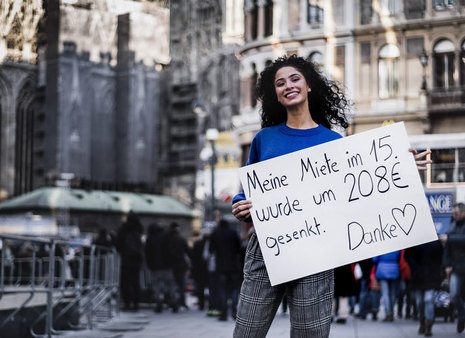 Meine Miete im 15.
wurde um 208€
gesenkt. Danke♡